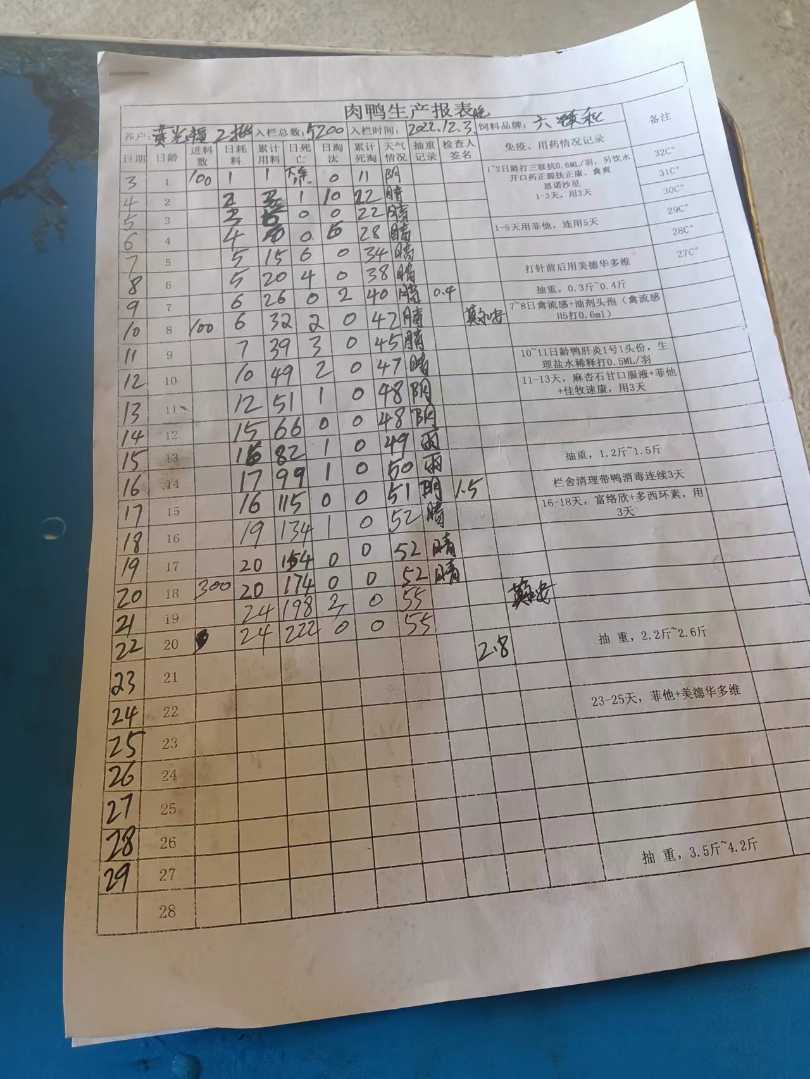 肉鸭生产报表
客户: 2批 入栏总数:5200 入栏时间: 2022.12.3 饲料品牌: 六
日期 日龄 进料数 日耗料 累计用料 日死亡 日淘汰 累计死淘 天气情况 抽重记录 检查人签名 免疫、用药情况记录 备注
3 1 100 1 1 0 11 阴 1~2日龄打三联抗0.6ML/羽,另饮水 32C°
开口药正腺肽止康、禽爽
恩诺沙星 31C°
4 2 2 1 10 22 晴 1-3天,用3天 30C°
5 3 0 0 22 晴 29C°
6 4 4 0 28 晴 1-5天用菲他,连用5天 28C°
7 5 5 15 6 0 34 晴 27C°
8 6 5 20 4 0 38 晴 打针前后用美德华多维
9 7 6 26 0 2 40 晴 0.4 抽重,0.3斤~0.4斤
10 8 100 6 32 2 0 42 晴 7~8日禽流感+油剂头孢(禽流感
H5打0.6ml)
11 9 7 39 3 0 45 晴
12 10 10 49 2 0 47 晴 10~11日龄鸭肝炎1号1头份,生
理盐水稀释打0.5ML/羽
13 11 12 51 1 0 48 阴 11-13天,麻杏石甘口服液+菲他
+佳牧速康,用3天
14 12 15 66 0 0 48 阴
15 13 16 82 1 0 49 雨 抽重,1.2斤~1.5斤
16 14 17 99 1 0 50 雨
17 15 16 115 0 0 51 阴 1.5 栏舍清理带鸭消毒连续3天
18 16 19 134 1 0 52 晴 16-18天,富络欣+多西环素,用
3天
19 17 20 154 0 0 52 晴
20 18 300 20 174 0 0 52 晴
21 19 24 198 2 0 55
22 20 24 222 0 0 55 2.8 抽 重,2.2斤~2.6斤
23 21
24 22 23-25天,菲他+美德华多维
25 23
26 24
27 25
28 26
29 27 抽 重,3.5斤~4.2斤
28